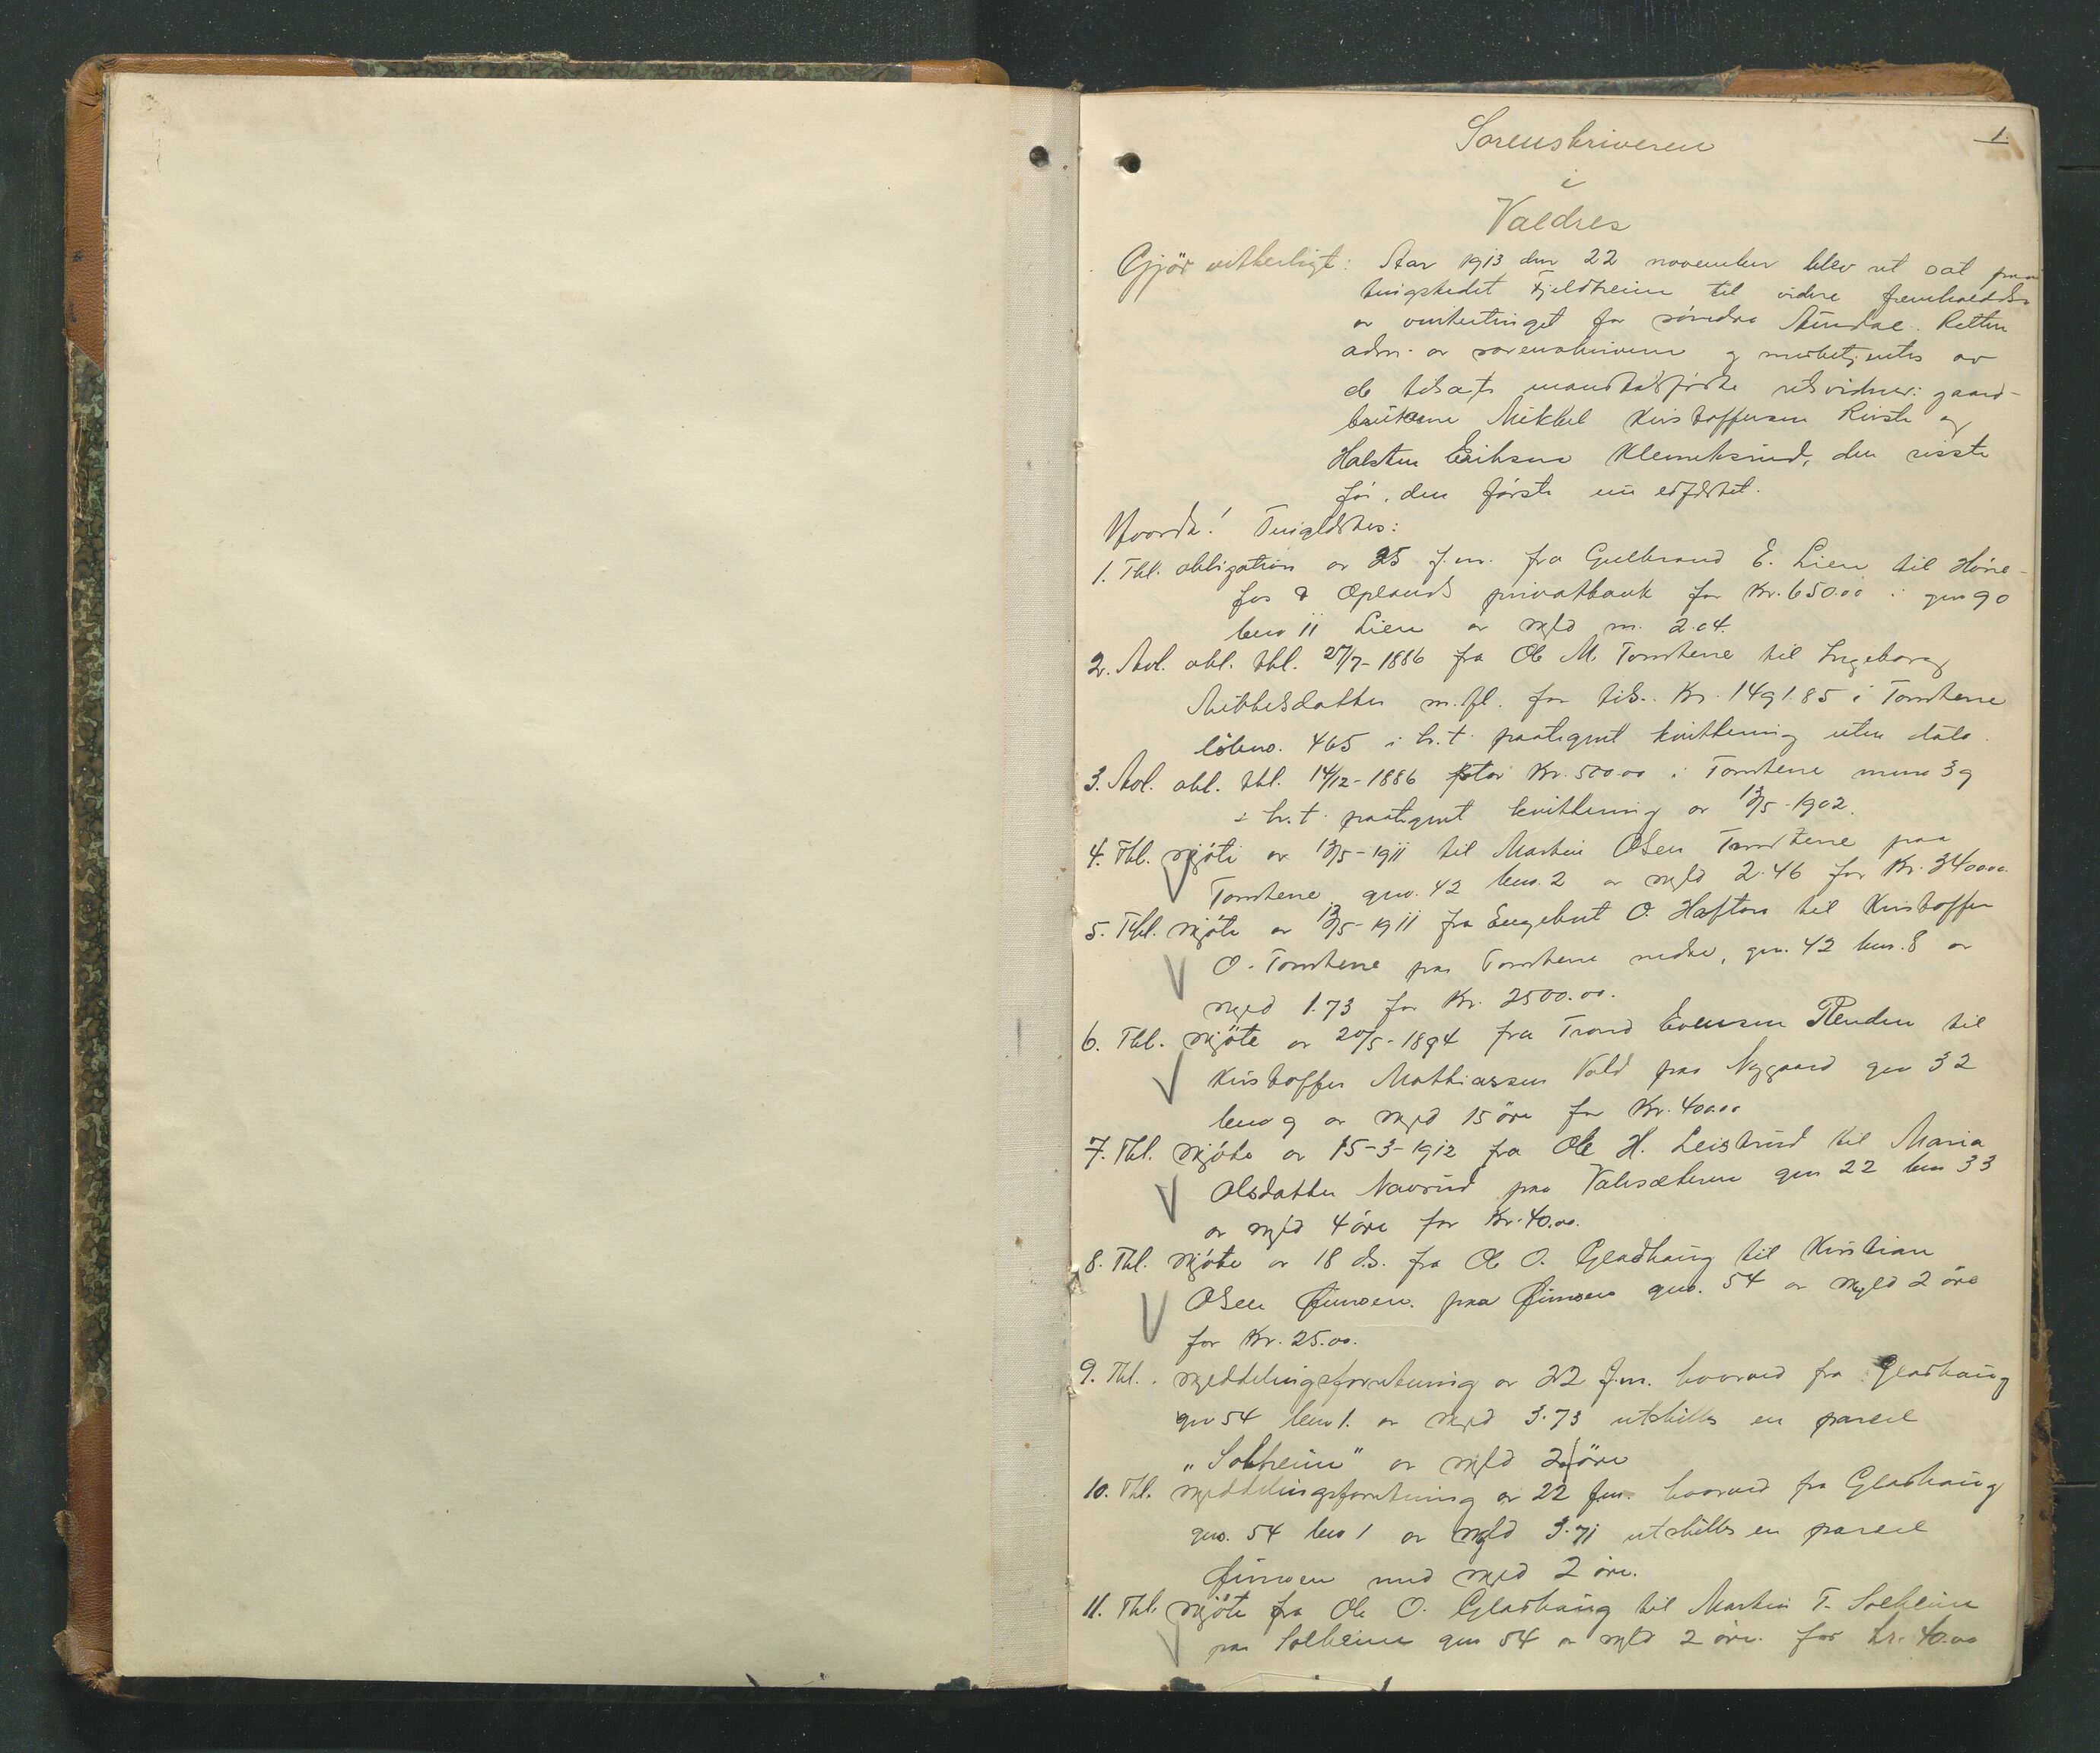 1.
Sorenskriveren
i
Valdres
Gjör vitterligt: Aar 1913 den 22 november blev ret sat paa
tingstedet Fjeldheim til videre fremholdelse
av høsttinget for söndre Aurdal. Retten
adm. av sorenskriveren og medbetjentes av
de tilsatte mandtalsförte retsvidner: gaard-
brukerne Mikkel Kristoffersen Rieste og
Halsten Eriksen Klemetsrud, den sisste
för, den förste nu edfæstet.
Hvorda! Tinglæstes:
1. Thl. obligation av 25 f.m. fra Gulbrand E. Lien til Höne-
fos & Oplands privatbank for Kr. 650.00 i gno 90
bno 11 Lien av skyld m. 2.04.
2. Avl. obl. thl. 27/7-1886 fra Ole M. Tomterne til Ingeborg
Mikkelsdatter m.fl. for tils. Kr. 1491.85 i Tomterne
löbeno. 465 i h.t. paategnet kvittering uten dato.
3. Avl. obl. thl. 14/12-1886 stor Kr. 500.00 i Tomterne mno 39
i h.t. paategnet kvittering av 13/5-1902.
4. Thl. skjöte av 13/5-1911 til Martin Olsen Tomterne paa
Tomterne gno. 42 bno. 2 av skyld 2.46 for Kr. 3400.00
5. Thl. skjöte av 13/5-1911 fra Engebret O. Hafton til Kristoffer
O. Tomterne paa Tomterne nedre, gno. 42 bno. 8 av
skyld 1.73 for Kr. 2500.00.
6. Thl. skjöte av 20/5-1894 fra Trond Evensen Renden til
Kristoffer Mathiassen Vold paa Nygaard gno 32
bno 9 av skyld 15 öre for Kr. 400.00
7. Thl. skjöte av 15-3-1912 fra Ole H. Leistrud til Maria
Olsdatter Navrud paa Valesæteren gno 22 bno 33
av skyld 4 öre for Kr. 40.00.
8. Thl. skjöte av 18 d.s. fra Ole O. Gladhaug til Kristian
Olsen Furmoen paa Furmoen gno. 54 av skyld 2 öre
for Kr. 25.00.
9. Thl. skylddelingsforretning av 22 f.m. hvorved fra Gladhaug
gno 54 bno 1. av skyld 3.73 utskilles en parcel
„Solheim" av skyld 2 öre
10. Thl. skylddelingsforretning av 22 f.m. hvorved fra Gladhaug
gno. 54 bno 1 av skyld 3.71 utskilles en parcel
Furmoen med skyld 2 öre.
11. Thl. skjöte fra Ole O. Gladhaug til Martin T. Solheim
paa Solheim gno 54 av skyld 2 öre for kr. 40.00